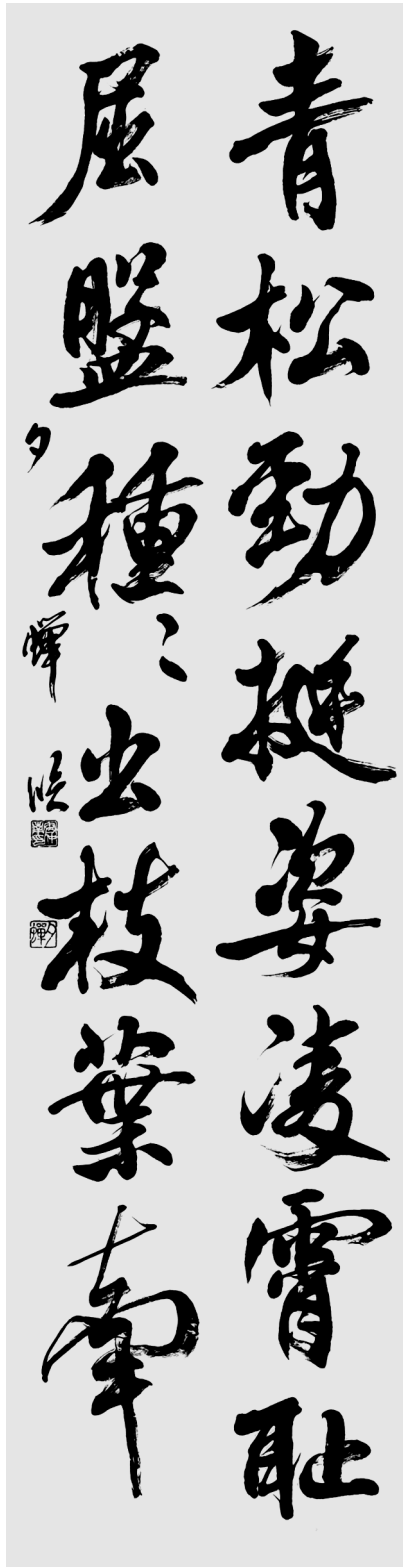 青松勁挺姿凌霄耻
屈盤種〻出枝葉牽
夕蟬